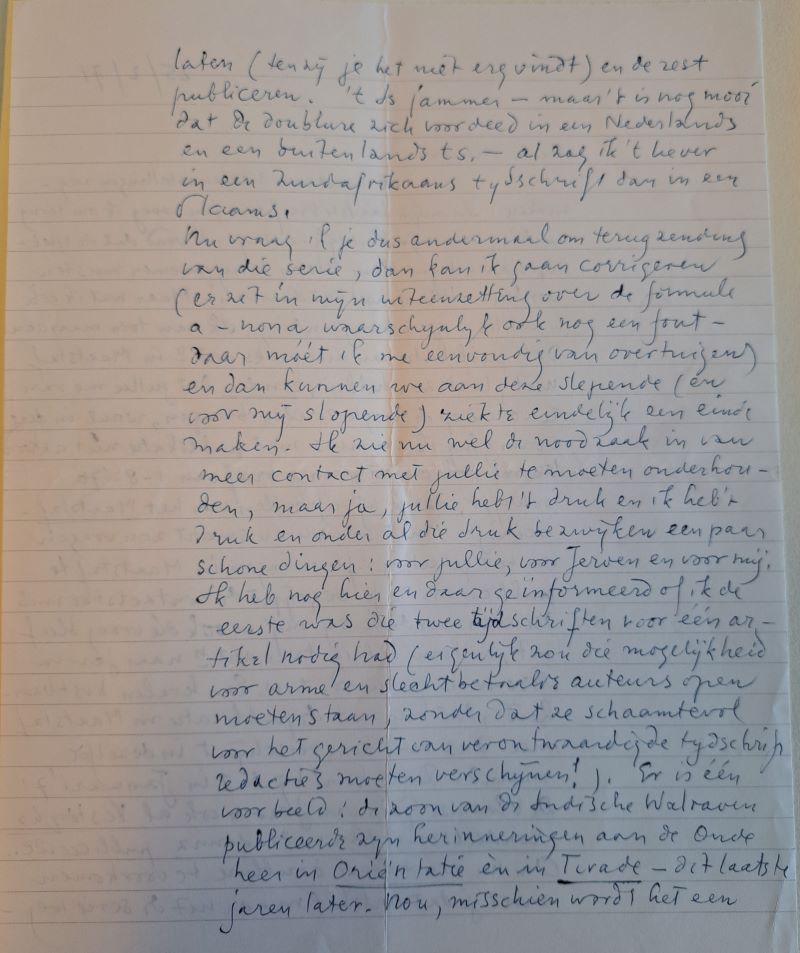 laten (tenzij je het niet erg vindt) en de rest
publiceren. 't Is jammer – maar 't is nog mooi
dat de doublure zich voordeed in een Nederlands
en een buitenlands ts. – al zag ik 't liever
in een Zuidafrikaans tydschrift dan in een
Vlaams.
Nu vraag ik je dus andermaal om terugzending
van die serie, dan kan ik gaan corrigeren
(er zit in mijn uiteenzetting over de formule
a – non a waarschynlyk ook nog een fout –
daar móét ik me eenvoudig van overtuigen)
en dan kunnen we aan deze slepende (en
voor mij slopende) ziekte eindelijk een einde
maken. Ik zie nu wel de noodzaak in van
meer contact met jullie te moeten onderhou-
den, maar ja, jullie hebt 't druk en ik heb 't
druk en onder al die druk bezwijken een paar
schone dingen: voor jullie, voor Jerven en voor mij.
Ik heb nog hier en daar geïnformeerd of ik de
eerste was die twee tijdschriften voor één ar-
tikel nodig had (eigenlijk zou die mogelijkheid
voor arme en slechtbetaalde auteurs open
moeten staan, zonder dat ze schaamtevol
voor het gericht van verontwaardigde tydschrift
redacties moeten verschijnen!). Er is één
voorbeeld: de zoon van de Indische Walraven
publiceerde zyn herinneringen aan de Oude
heer in Oriëntatie èn in Tirade – dit laatste
jaren later. Nou, misschien wordt het een